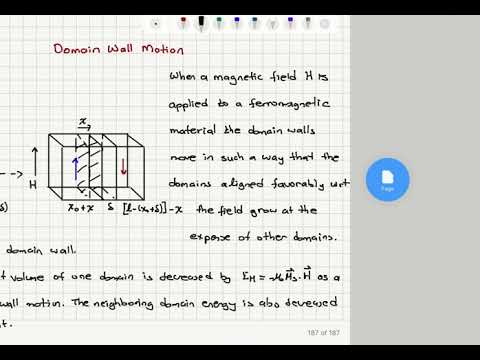 Domain Wall Motion
When a magnetic field H is
applied to a ferromagnetic
material the domain walls
move in such a way that the
domains aligned favorably wrt
the field grow at the
expense of other domains.
x
H
x₀+x δ [l-(x₀+δ)]-x
δ)
domain wall.
volume of one domain is decreased by E_H = μ₀M⃗s·H⃗ as a
wall motion. The neighboring domain energy is also decreased
Page
187 of 187